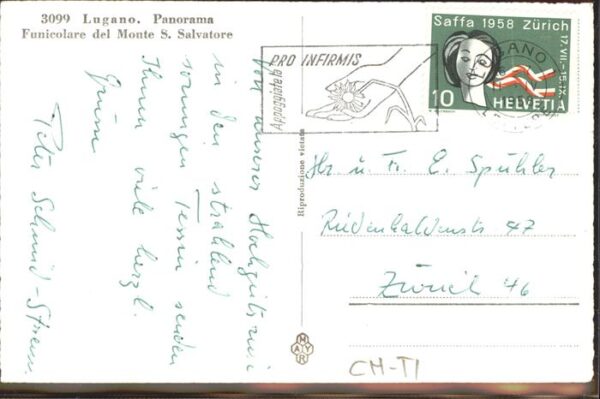 3099 Lugano. Panorama
Funicolare del Monte S. Salvatore
Von unserer Hochzeitsreise
in den strahlend
sonnigen Tessin senden
Ihnen viele herzl.
Grüsse
Peter Schmid-
PRO INFIRMIS
Appoggiatela
Saffa 1958 Zürich
17.VII.-15.IX.
10 HELVETIA
LUGANO
Hr. u. Fr. E. Spühler
Riedenhaldenstr 47
Zürich 46
Riproduzione vietata
MAYR
CH-TI